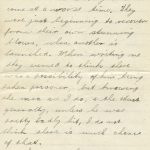 come at a worse time. They
were just beginning to recover
from their own stunning
blows, when another is
launched. When working me
they seemed to think there
was a possibility of his being
taken prisoner, but knowing
the man as I do, & the those
generally, unless he was
pretty badly hit, I do not
think there is much chance
of that.